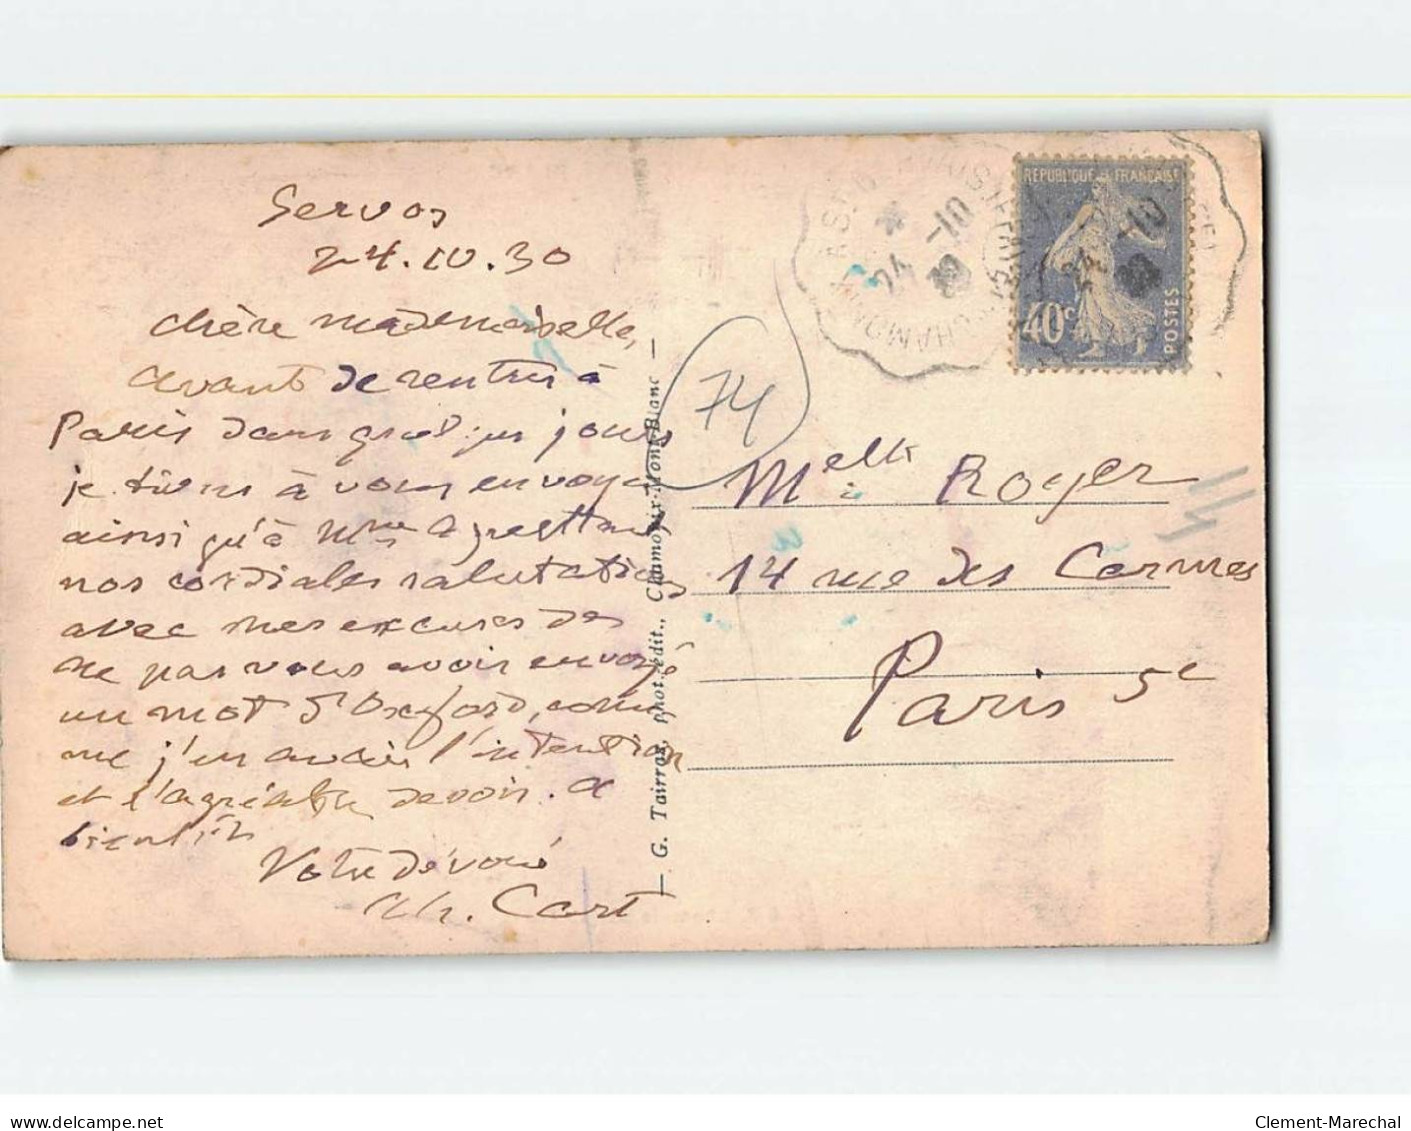 Servoz
24.10.30
chère mademoiselle,
avant de rentrer à
Paris dans quelques jours
je tiens à vous envoyer
ainsi qu'à Mme
nos cordiales salutations
avec mes excuses de
ne pas vous avoir envoyé
un mot d'Oxford, com
me j'en avais l'intention
et l'agréable devoir. A
bientôt
Votre dévoué
Ch. Cart
— G. Tairraz, phot. édit., Chamonix-Mont-Blanc —
74
RÉPUBLIQUE FRANÇAISE
40c
POSTES
24 -10
Melle Royer
14 rue des Carmes
Paris 5e
delcampe.net
Clement-Marechal